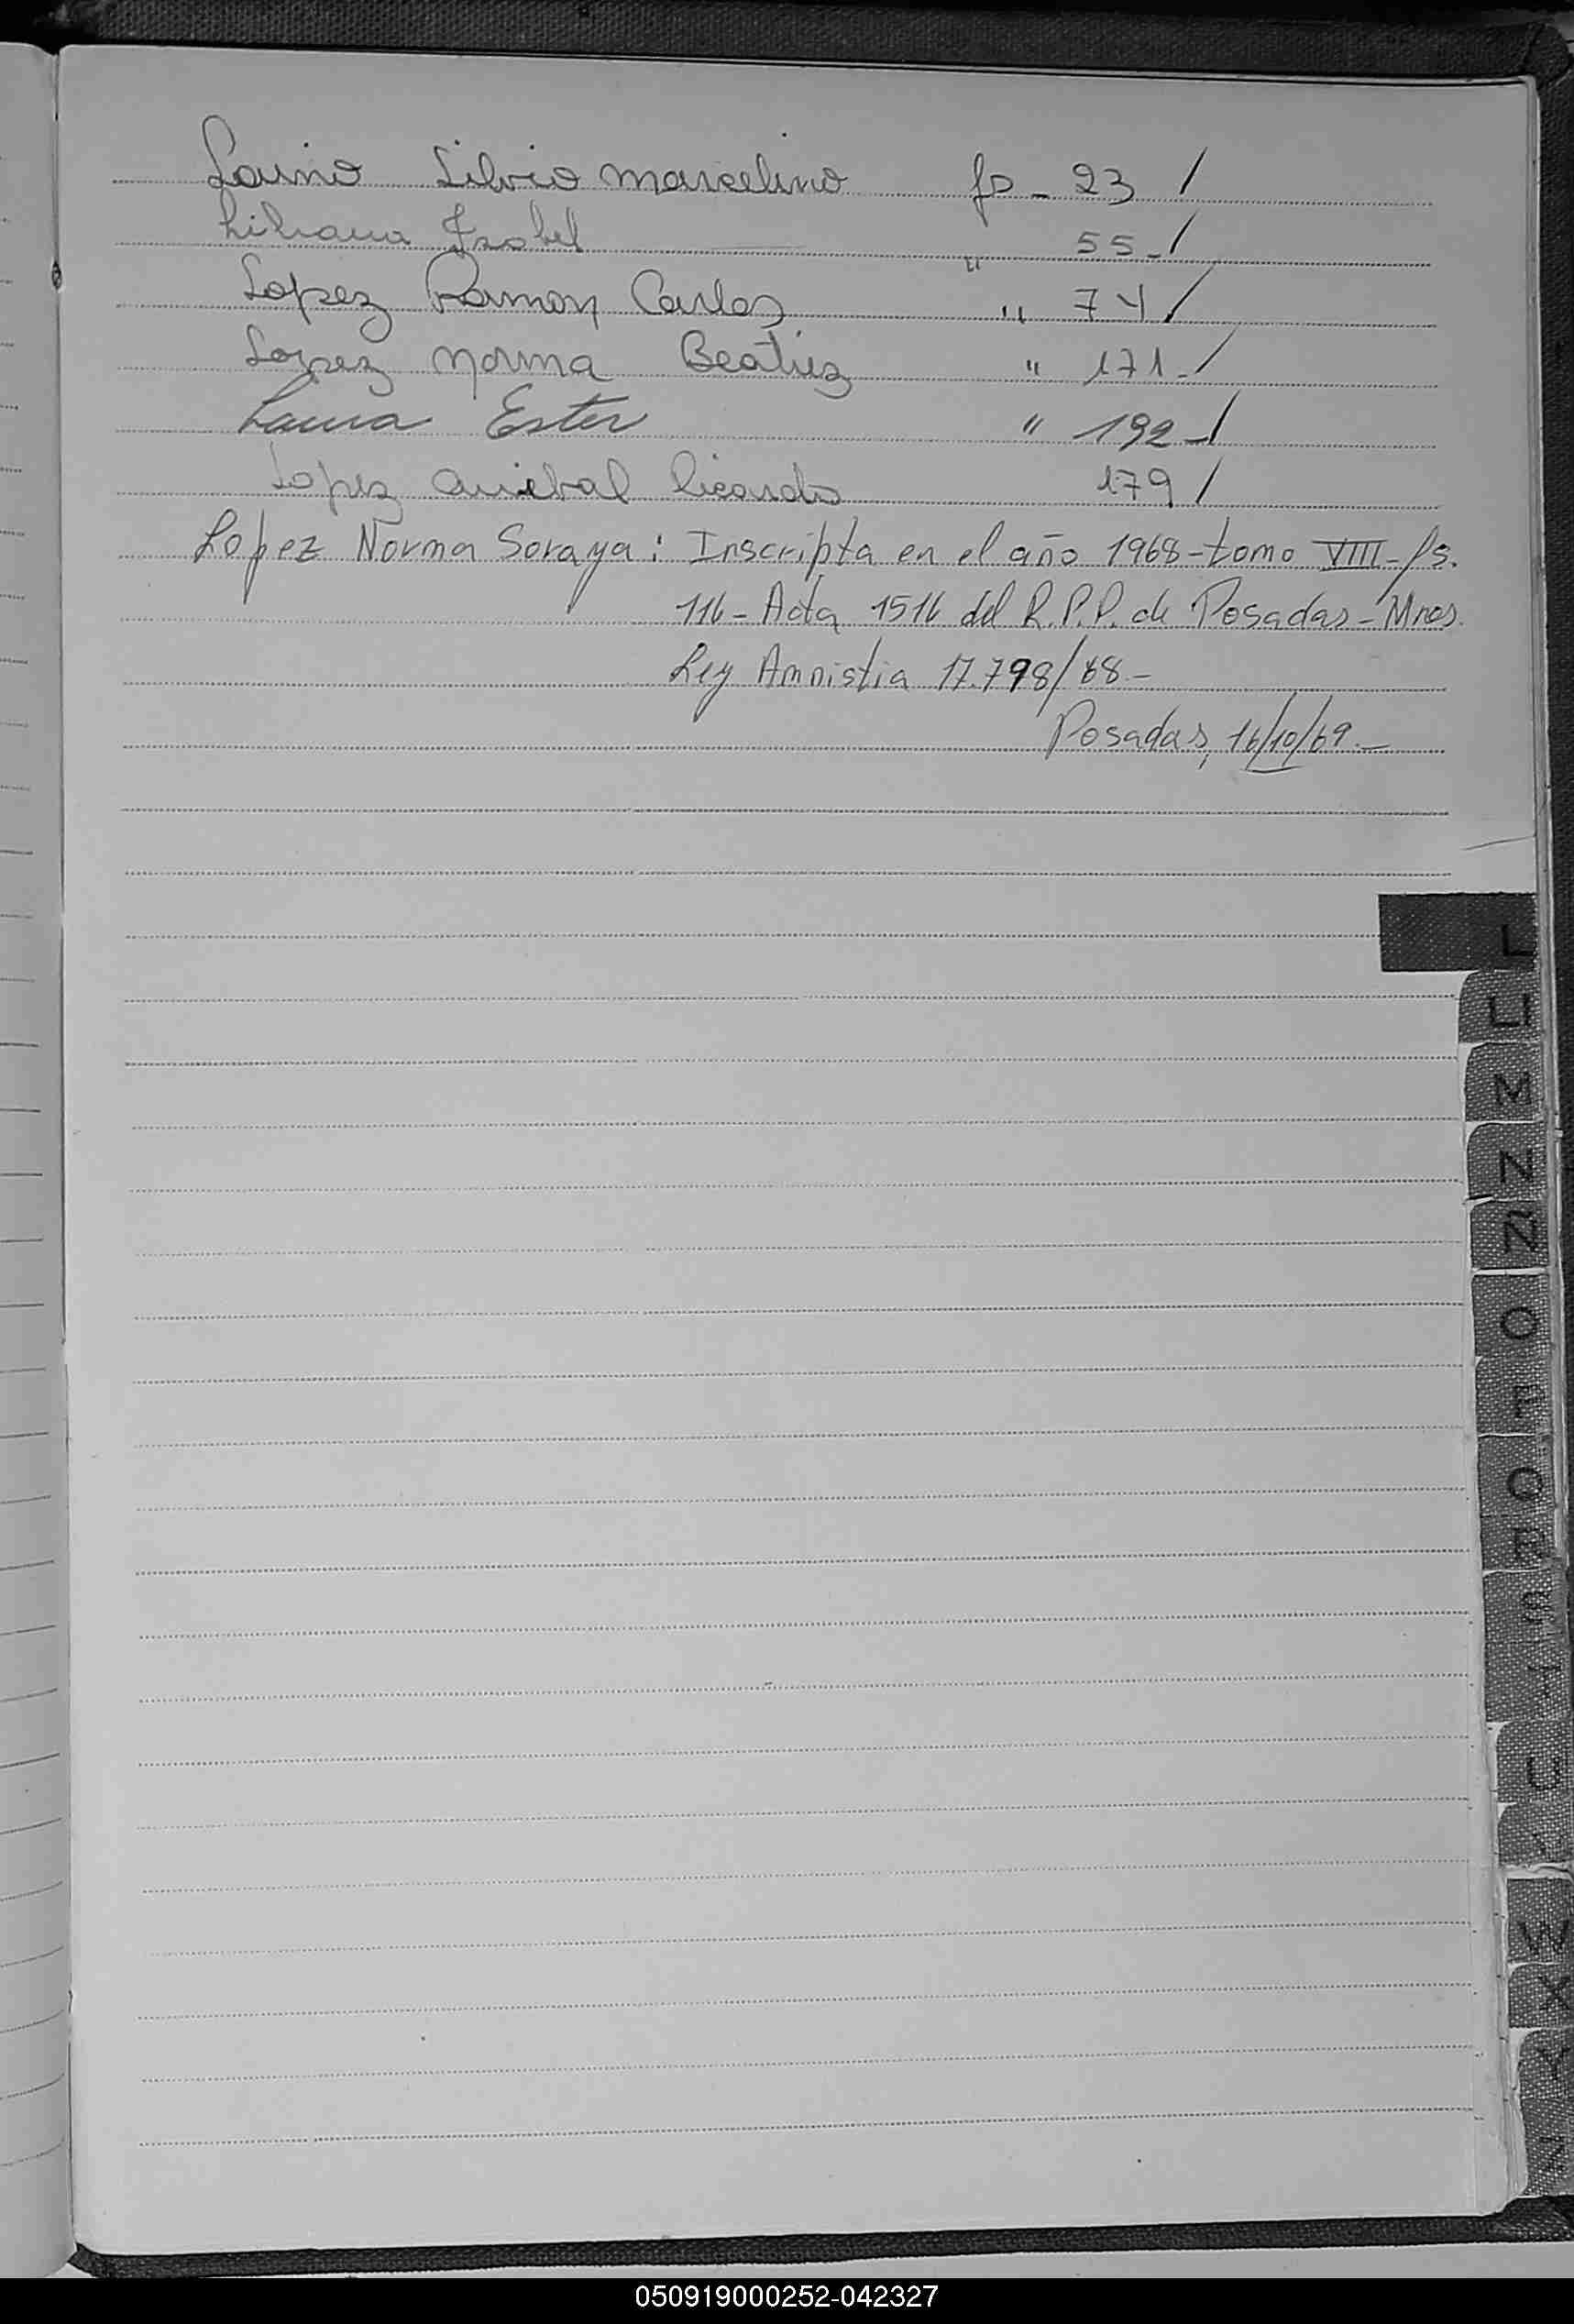 Laino Silvio Marcelino fs - 23 /
Liliana Isabel " 55 - /
Lopez Ramon Carlos " 74 /
Lopez Norma Beatriz " 171 - /
Laura Ester " 192 - /
Lopez Anibal Ricardo 179 /
Lopez Norma Soraya: Inscripta en el año 1968 - tomo VIII - fs.
116 - Acta 1516 del R.P.P. de Posadas - Mnes.
Ley Amnistia 17.798/68 -
Posadas, 16/10/69. -
L
LL
M
N
Ñ
O
P
Q
R
S
T
U
V
W
X
Y
Z
050919000252-042327